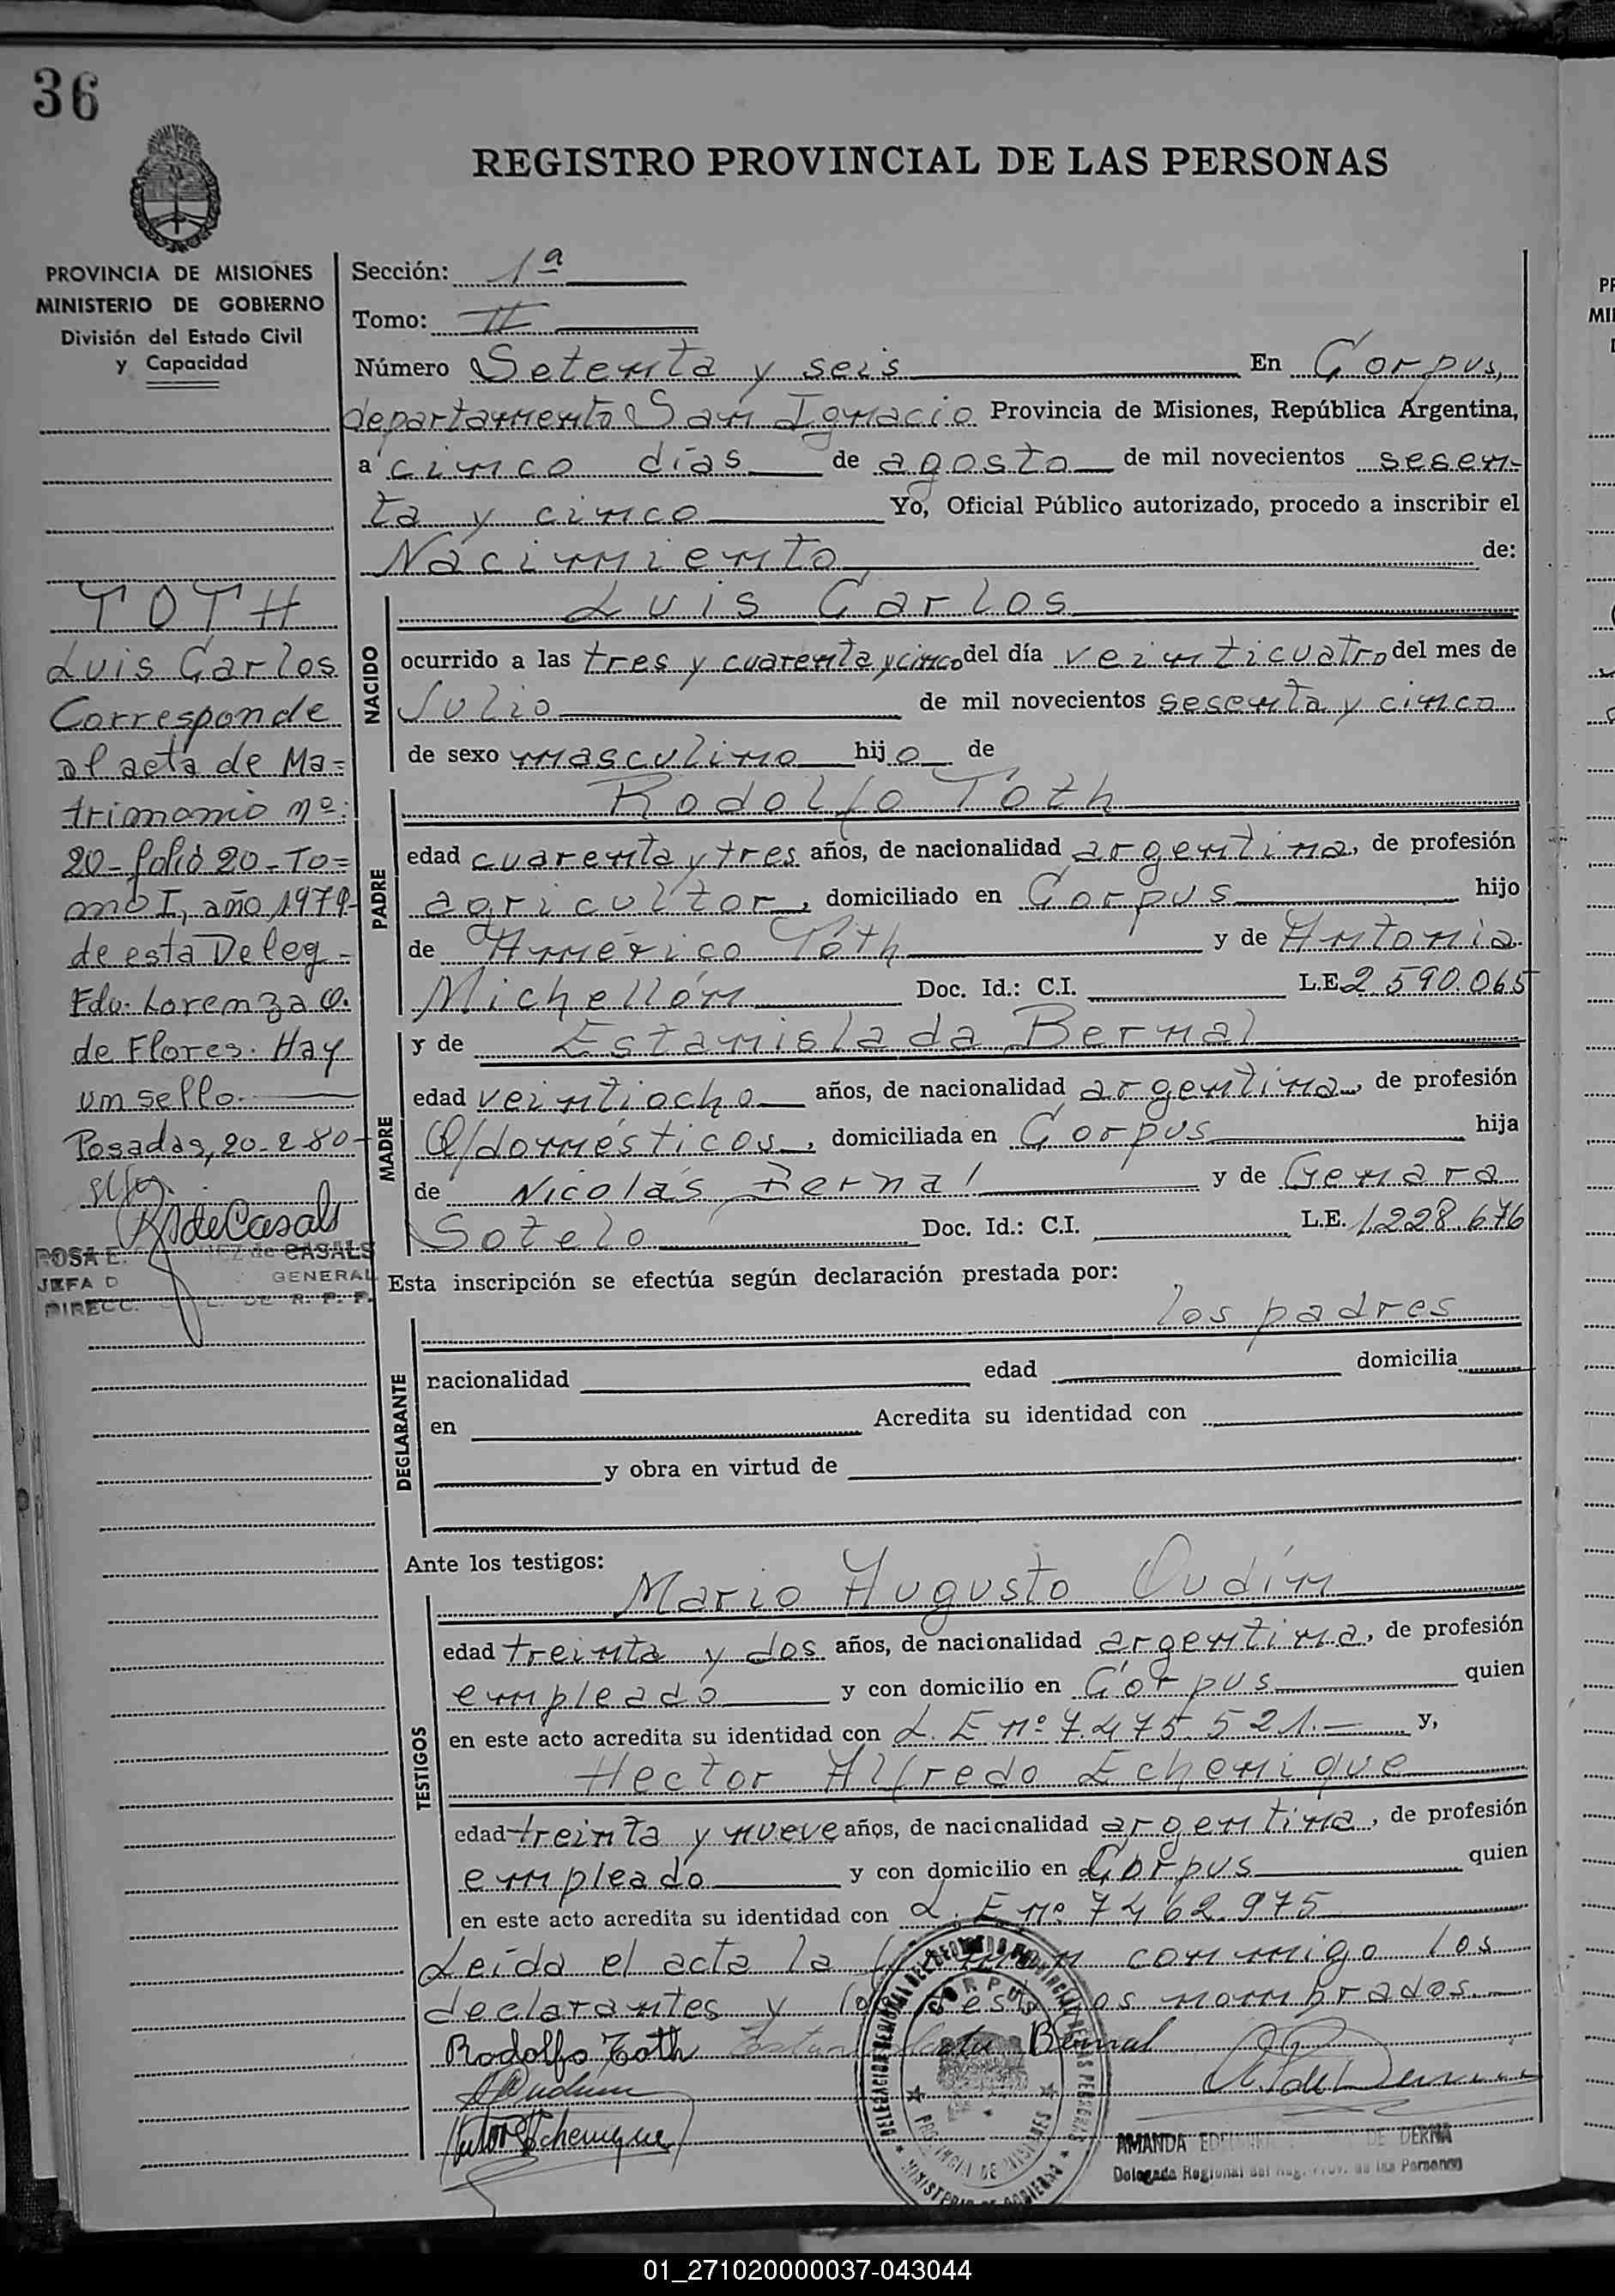 36
REGISTRO PROVINCIAL DE LAS PERSONAS
PROVINCIA DE MISIONES
MINISTERIO DE GOBIERNO
División del Estado Civil
y Capacidad
TOTH
Luis Carlos
Corresponde
al acta de Ma=
trimonio nº:
20-folio 20-To=
mo I, año 1979-
de esta Deleg-
Fdo. Lorenza O.
de Flores. Hay
un sello.
Posadas, 20-2-80-
R de Casals
ROSA E. de CASALS
JEFA D GENERAL
DIRECC. DE R. P. P.
Sección: 1ª
Tomo: II
Número Setenta y seis En Corpus,
departamento San Ignacio Provincia de Misiones, República Argentina,
a cinco días de agosto de mil novecientos sesen-
ta y cinco Yo, Oficial Público autorizado, procedo a inscribir el
Nacimiento de:
NACIDO
Luis Carlos
ocurrido a las tres y cuarenta y cinco del día veinticuatro del mes de
Julio de mil novecientos sesenta y cinco
de sexo masculino hijo de
PADRE
Rodolfo Toth
edad cuarenta y tres años, de nacionalidad argentina, de profesión
agricultor, domiciliado en Corpus hijo
de Américo Toth y de Antonia
Michellón Doc. Id.: C.I. L.E. 2.590.065
MADRE
y de Estanislada Bernal
edad veintiocho años, de nacionalidad argentina, de profesión
Q/domésticos, domiciliada en Corpus hija
de Nicolás Bernal y de Genara
Sotelo Doc. Id.: C.I. L.E. 1.228.676
Esta inscripción se efectúa según declaración prestada por:
DECLARANTE
los padres
nacionalidad edad domicilia
en Acredita su identidad con
y obra en virtud de
Ante los testigos:
TESTIGOS
Mario Augusto Oudín
edad treinta y dos años, de nacionalidad argentina, de profesión
empleado y con domicilio en Corpus quien
en este acto acredita su identidad con L. E nº 7.475.521.- y,
Hector Alfredo Echenique
edad treinta y nueve años, de nacionalidad argentina, de profesión
empleado y con domicilio en Corpus quien
en este acto acredita su identidad con L. E nº 7462.975
Leída el acta la firman conmigo los
declarantes y los testigos nombrados.
Rodolfo Toth Bernal
Oudin
Hector Echenique
CORPUS
PROVINCIA DE MISIONES
MINISTERIO DE GOBIERNO
AMANDA DE DERNA
Delegada Regional del Reg. Prov. de las Personas
01_271020000037-043044